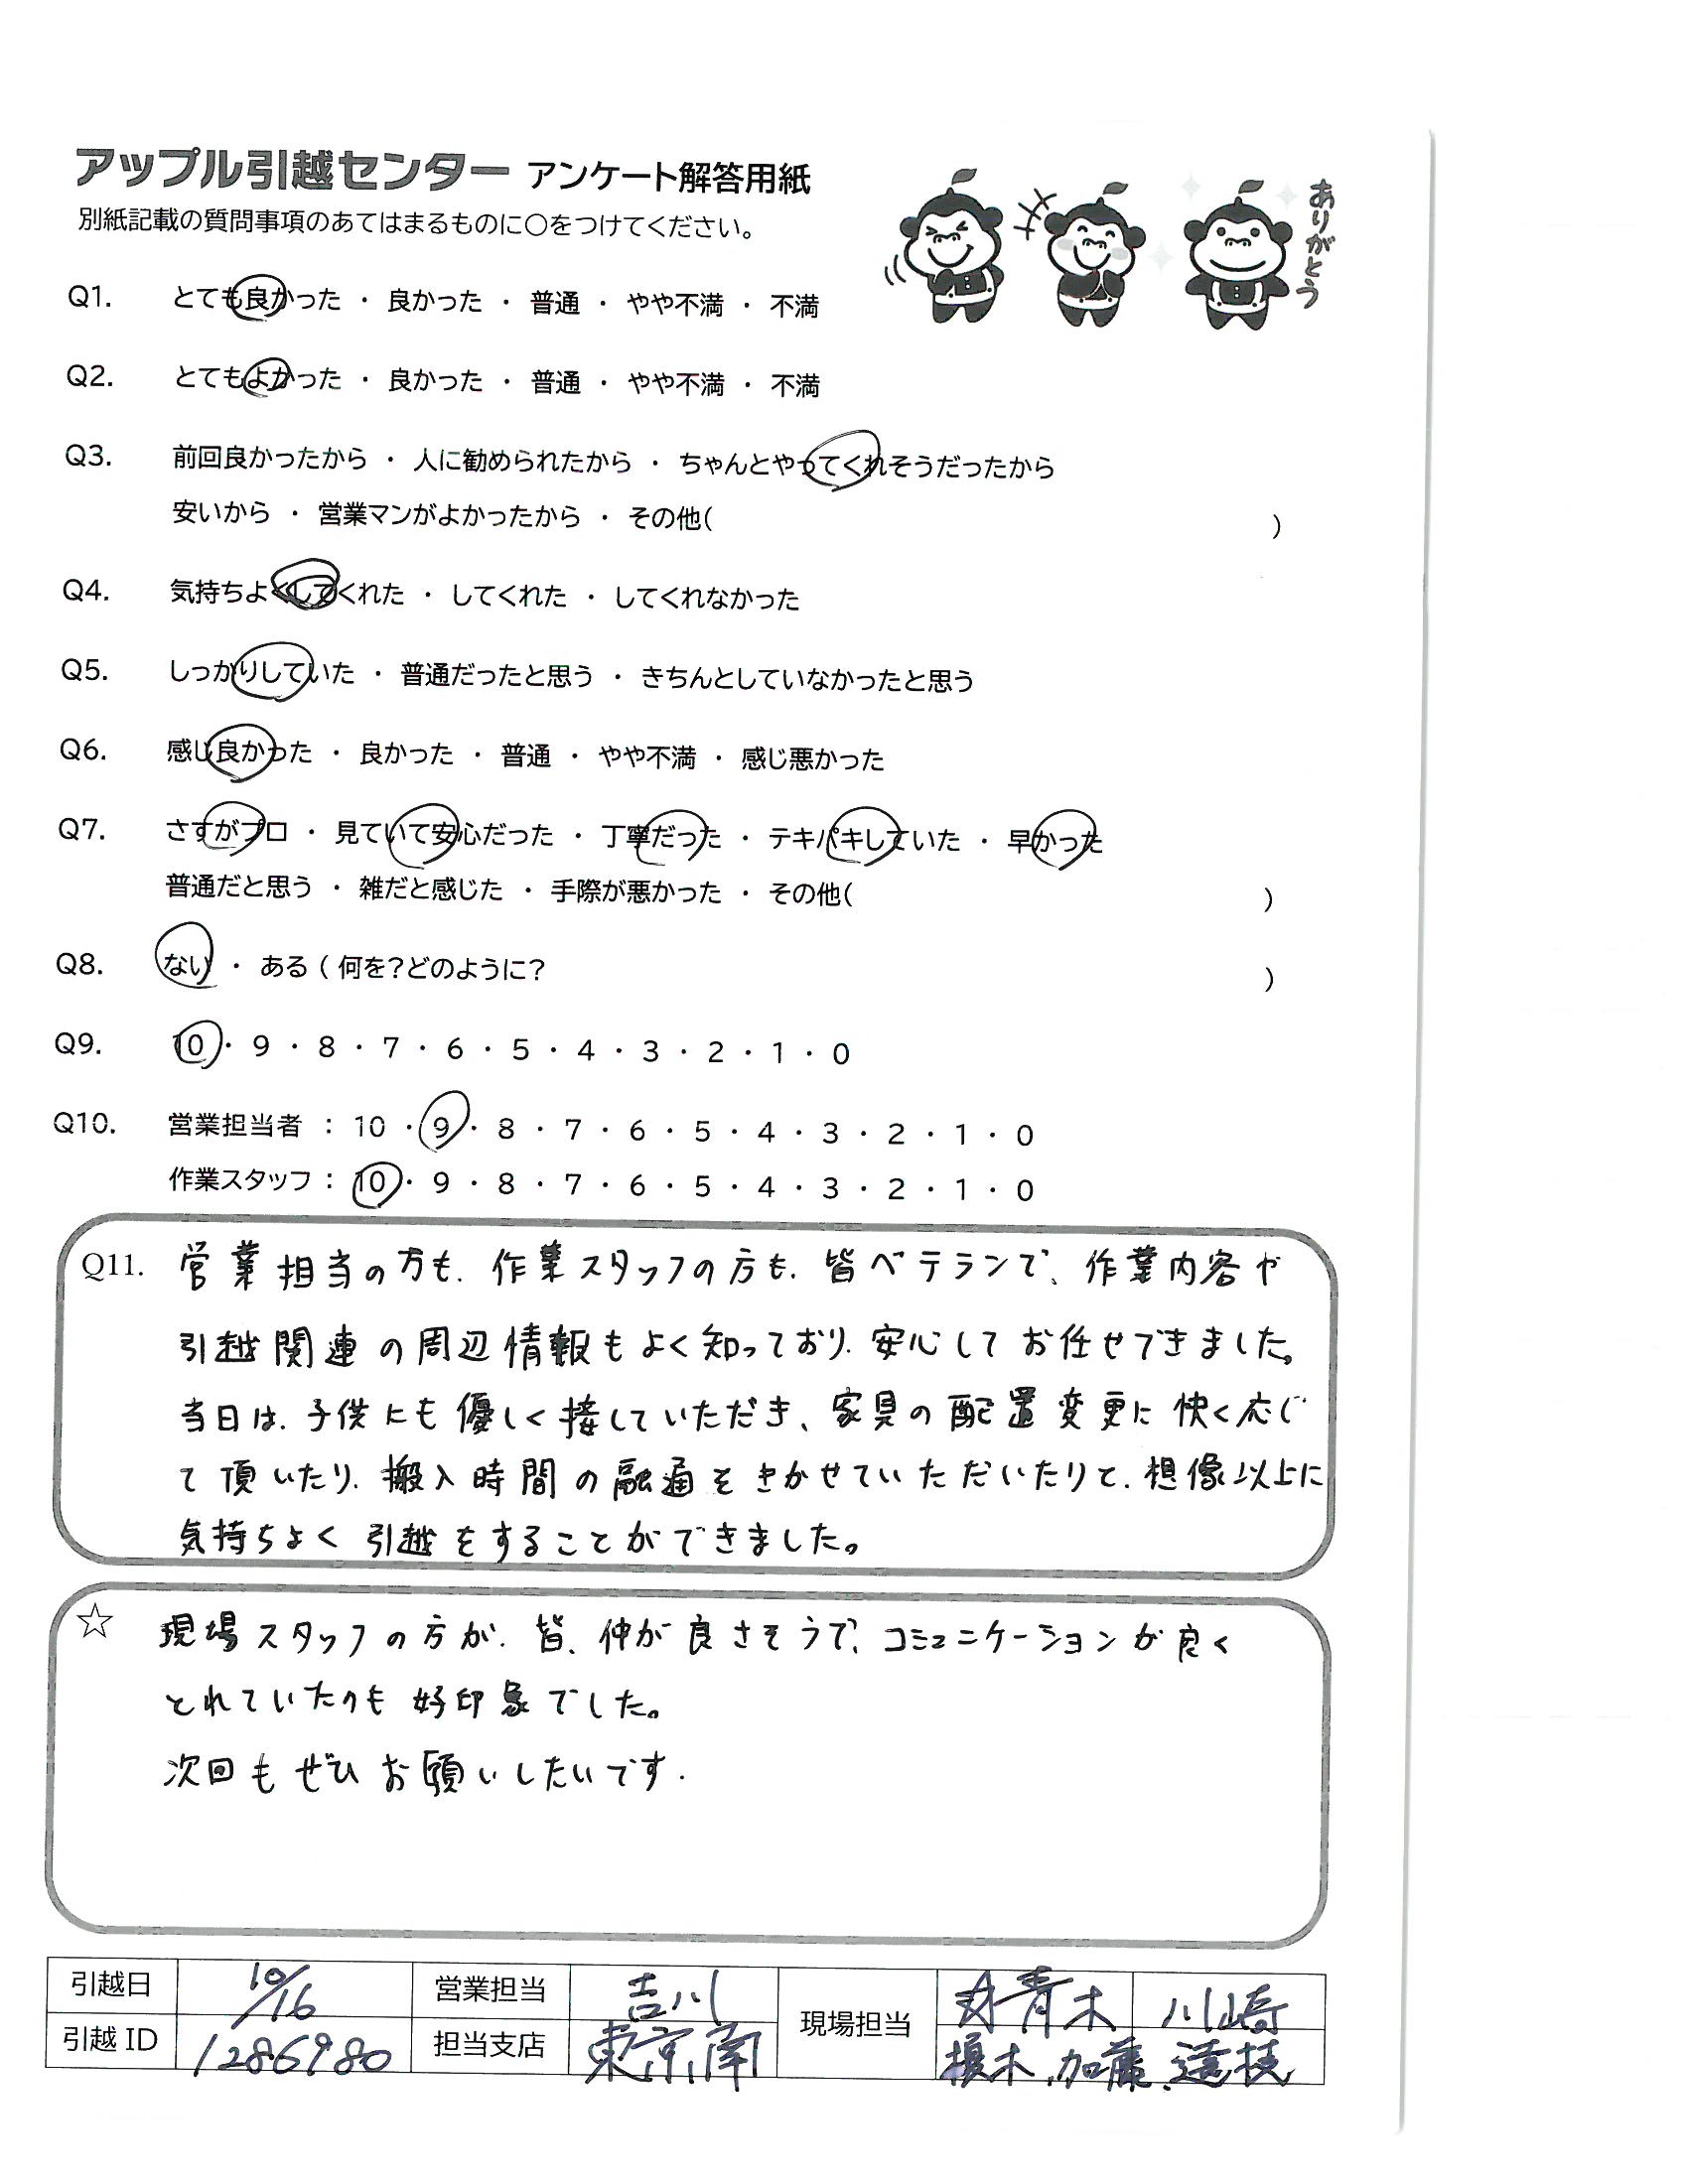 アップル引越センター アンケート解答用紙
別紙記載の質問事項のあてはまるものに○をつけてください。
ありがとう
Q1. とても良かった ・ 良かった ・ 普通 ・ やや不満 ・ 不満
Q2. とてもよかった ・ 良かった ・ 普通 ・ やや不満 ・ 不満
Q3. 前回良かったから ・ 人に勧められたから ・ ちゃんとやってくれそうだったから
安いから ・ 営業マンがよかったから ・ その他( )
Q4. 気持ちよくしてくれた ・ してくれた ・ してくれなかった
Q5. しっかりしていた ・ 普通だったと思う ・ きちんとしていなかったと思う
Q6. 感じ良かった ・ 良かった ・ 普通 ・ やや不満 ・ 感じ悪かった
Q7. さすがプロ ・ 見ていて安心だった ・ 丁寧だった ・ テキパキしていた ・ 早かった
普通だと思う ・ 雑だと感じた ・ 手際が悪かった ・ その他( )
Q8. ない ・ ある ( 何を？どのように？ )
Q9. 10 ・ 9 ・ 8 ・ 7 ・ 6 ・ 5 ・ 4 ・ 3 ・ 2 ・ 1 ・ 0
Q10. 営業担当者 ： 10 ・ 9 ・ 8 ・ 7 ・ 6 ・ 5 ・ 4 ・ 3 ・ 2 ・ 1 ・ 0
作業スタッフ ： 10 ・ 9 ・ 8 ・ 7 ・ 6 ・ 5 ・ 4 ・ 3 ・ 2 ・ 1 ・ 0
Q11. 営業担当の方も、作業スタッフの方も、皆ベテランで、作業内容や
引越関連の周辺情報もよく知っており、安心してお任せできました。
当日は、子供にも優しく接していただき、家具の配置変更に快く応じ
て頂いたり、搬入時間の融通をきかせていただいたりと、想像以上に
気持ちよく引越をすることができました。
☆ 現場スタッフの方が、皆、仲が良さそうで、コミュニケーションが良く
とれていたのも好印象でした。
次回もぜひお願いしたいです.
引越日 10/16 営業担当 吉川 現場担当 青木 川崎
引越 ID 1286980 担当支店 東京南 榎木、加藤、